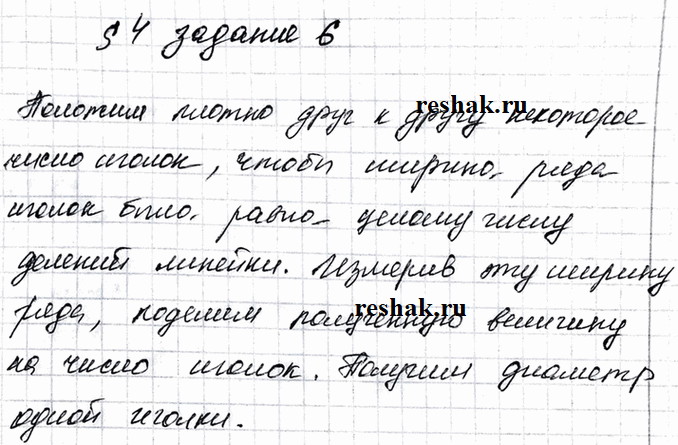 § 4 задание 6
Положим плотно друг к другу некоторое
число иголок, чтобы ширина ряда
иголок была равна целому числу
делений линейки. Измерив эту ширину
ряда, поделим полученную величину
на число иголок. Получим диаметр
одной иголки.
reshak.ru
reshak.ru